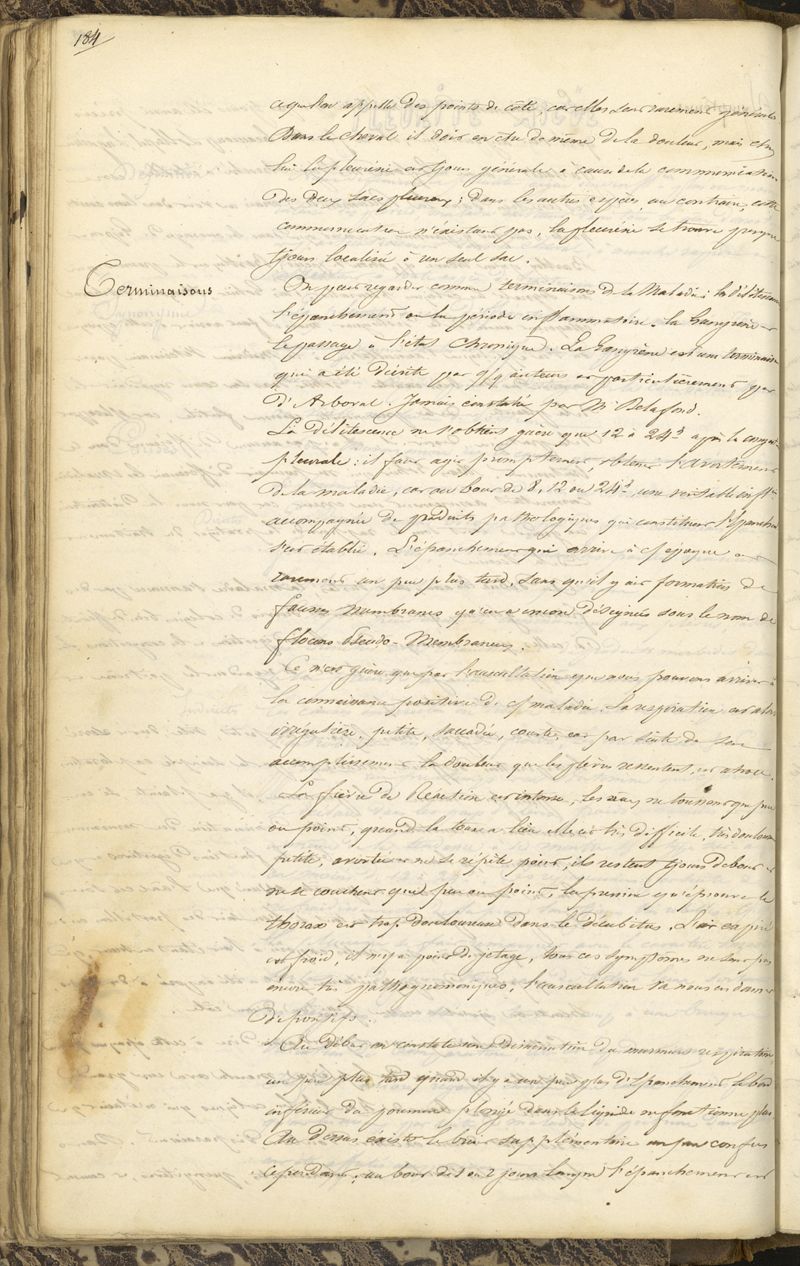 184
ce qu'on appelle des points de côté car elles sont rarement générales
Dans le cheval il doit en etre de même de la douleur, mais chez
lui la pleurésie est tjours générale à cause de la communication
des deux sacs pleuraux; dans les autres espèces, au contraire, cette
communication n'éxistant pas, la pleurésie se trouve presque
tjours localisée à un seul sac.
Terminaisons
On peut regarder comme terminaisons de la Maladie: la délitescence
l'épanchement ou la période inflammatoire. la Gangrène et
le passage à l'état Chronique. La Gangrène est une terminaison
qui a été décrite par qlq auteurs et particulièrement par
D'Arboval. Jamais constatée par Mr Delafond.
La Délitescence ne s'obtient guère que 12 à 24h après la congest
pleurale: il faut agir promptement, obtenir l'avortement
de la maladie, car au bout de 8, 12 ou 24h une véritable inflon
accompagnée de produits pathologiques qui constituent l'épanchet
s'est établie. L'épanchement qui arrive à cf époque ou
rarement un peu plus tard, sans qu'il y ait formation de
fausses Membranes qu'on a encore désignées sous le nom de
flocons Pseudo-Membraneux.
Ce n'est guère que par l'auscultation que nous pouvons arriver à
la connaissance positive de cf maladie. La respiration est alors
irrégulière, petite, saccadée, courte, car par suite de son
accomplissement la douleur que les plèvres ressentent, est atroce.
La fièvre de Réaction est intense, les anx ne toussent que peu
ou point, quand la toux a lieu elle est très difficile, très douloureuse
petite, avortée et ne se répète point, ils restent tjours debout et
ne se couchent que peu ou point, la pression qu'éprouve le
thorax est trop douloureuse dans le décubitus. L'air expiré
est froid, il n'y a point de jetage, tous ces symptomes ne sont pas
encore très pathognomoniques, l'auscultation va nous en donner
de positifs.
Au début on constate une diminution du murmure respiratoire
un peu plus tard quand il y a un peu plus d'épanchement le bord
inférieur du poumon plongé dans le liquide ne fonctionne plus
Au Dessus éxiste le bruit supplémentaire un peu confus
cependant, au bout de 1 ou 2 jours lorsque l'épanchement est